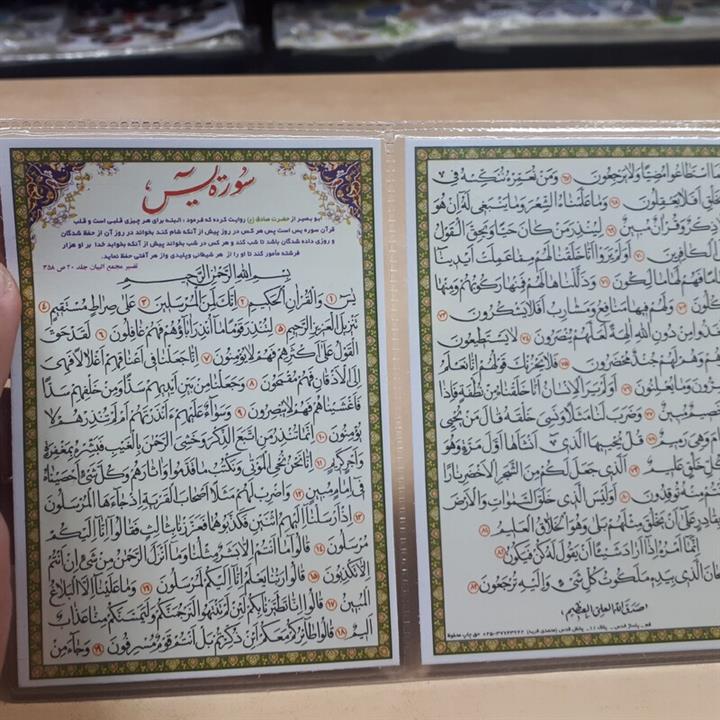 سورة یس
ابو بصیر از حضرت صادق (ع) روایت کرده که فرمود : البته برای هر چیزی قلبی است و قلب
قرآن سوره یس است پس هر کس در روز پیش از آنکه شام کند بخواند در روز آن از حفظ شدگان
و روزی داده شدگان باشد تا شب کند و هر کس در شب بخواند پیش از آنکه بخوابد خدا بر او هزار
فرشته مأمور کند تا او را از هر شیطانی وپلیدی واز هر آفتی حفظ نماید.
تفسیر مجمع البیان جلد ۲۰ ص ۳۵۸
بسم الله الرحمن الرحیم
یس ۱ والقرآن الحکیم ۲ انک لمن المرسلین ۳ علی صراط مستقیم ۴
تنزیل العزیز الرحیم ۵ لتنذر قوما ما انذر اباؤهم فهم غافلون ۶ لقد حق
القول علی اکثرهم فهم لا یؤمنون ۷ انا جعلنا فی اعناقهم اغلالا فهی
الی الاذقان فهم مقمحون ۸ وجعلنا من بین ایدیهم سدا ومن خلفهم سدا
فاغشیناهم فهم لا یبصرون ۹ وسواء علیهم ءانذرتهم ام لم تنذرهم لا
یؤمنون ۱۰ انما تنذر من اتبع الذکر وخشی الرحمن بالغیب فبشره بمغفرة
واجر کریم ۱۱ انا نحن نحیی الموتی ونکتب ما قدموا واثارهم وکل شیء احصیناه
فی امام مبین ۱۲ واضرب لهم مثلا اصحاب القریة اذ جاءها المرسلون
۱۳ اذ ارسلنا الیهم اثنین فکذبوهما فعززنا بثالث فقالوا انا الیکم
مرسلون ۱۴ قالوا ما انتم الا بشر مثلنا وما انزل الرحمن من شیء ان انتم
الا تکذبون ۱۵ قالوا ربنا یعلم انا الیکم لمرسلون ۱۶ وما علینا الا البلاغ
المبین ۱۷ قالوا انا تطیرنا بکم لئن لم تنتهوا لنرجمنکم ولیمسنکم منا عذاب
الیم ۱۸ قالوا طائرکم معکم ائن ذکرتم بل انتم قوم مسرفون ۱۹ وجاء من
استطاعوا مضیا ولا یرجعون ۶۷ ومن نعمره ننکسه فی
افلا یعقلون ۶۸ وما علمناه الشعر وما ینبغی له ان هو
ذکر وقران مبین ۶۹ لینذر من کان حیا ویحق القول
الکافرین ۷۰ اولم یروا انا خلقنا لهم مما عملت ایدینا
فهم لها مالکون ۷۱ وذللناها لهم فمنها رکوبهم ومنها
ولهم فیها منافع ومشارب افلا یشکرون ۷۳
من دون الله الهة لعلهم ینصرون ۷۴ لا یستطیعون
وهم لهم جند محضرون ۷۵ فلا یحزنک قولهم انا نعلم
وما یعلنون ۷۶ اولم یر الانسان انا خلقناه من نطفة فاذا
مبین ۷۷ وضرب لنا مثلا ونسی خلقه قال من یحیی
وهی رمیم ۷۸ قل یحییها الذی انشاها اول مرة وهو
خلق علیم ۷۹ الذی جعل لکم من الشجر الاخضر نارا
انتم منه توقدون ۸۰ اولیس الذی خلق السموات والارض
بقادر علی ان یخلق مثلهم بلی وهو الخلاق العلیم ۸۱
انما امره اذا اراد شیئا ان یقول له کن فیکون ۸۲
الذی بیده ملکوت کل شیء والیه ترجعون ۸۳
صدق الله العلی العظیم